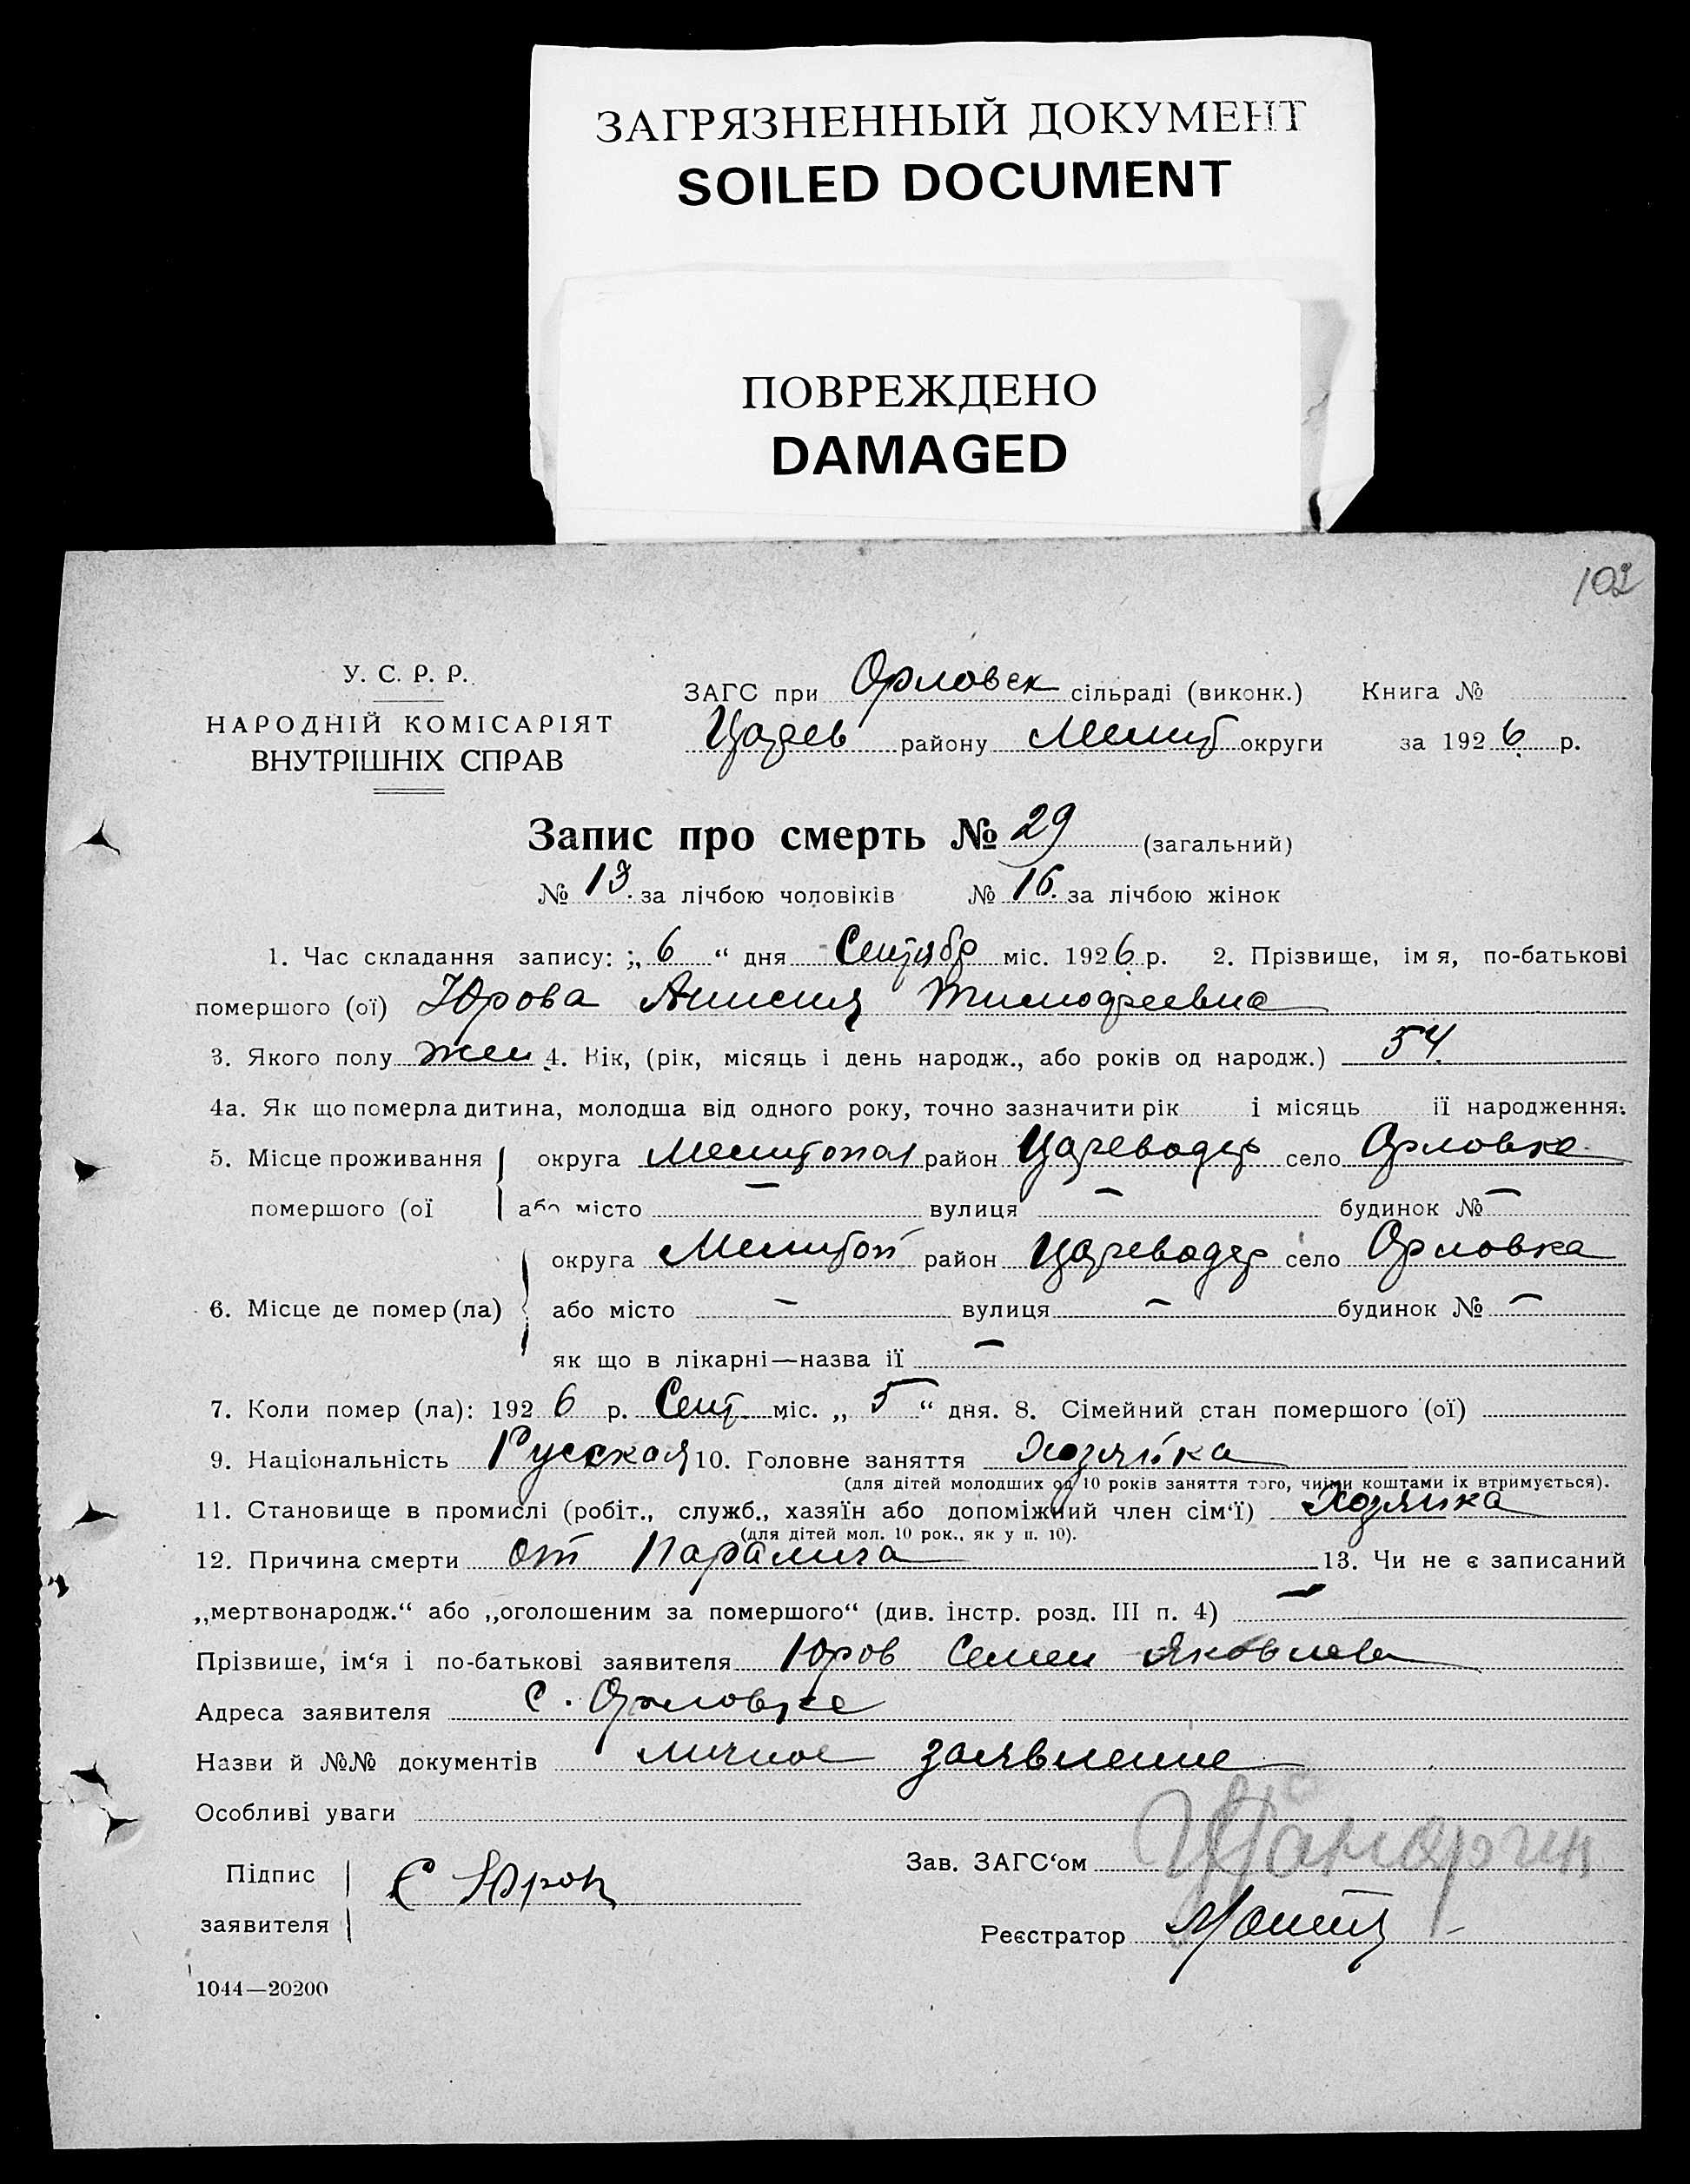 ЗАГРЯЗНЕННЫЙ ДОКУМЕНТ
SOILED DOCUMENT
ПОВРЕЖДЕНО
DAMAGED
102
У. С. Р. Р.
НАРОДНІЙ КОМІСАРІЯТ
ВНУТРІШНІХ СПРАВ
ЗАГС при Орловск сільраді (виконк.) Книга №
Царев району Мелит округи за 1926 р.
Запис про смерть № 29 (загальний)
№ 13. за лічбою чоловіків № 16. за лічбою жінок
1. Час складання запису: „ 6 “ дня Сентябр міс. 1926 р. 2. Прізвище, імя, по-батькові
помершого (ої) Юрова Анисия Тимофеевна
3. Якого полу жен 4. Вік, (рік, місяць і день народж., або років од народж.) 54.
4а. Як що померла дитина, молодша від одного року, точно зазначити рік і місяць її народження.
5. Місце проживання округа Мелитопол район Цареводар село Орловке
помершого (ої або місто — вулиця — будинок № —
округа Мелитоп район Цареводар село Орловка
6. Місце де помер (ла) або місто — вулиця — будинок № —
як що в лікарні—назва її —
7. Коли помер (ла): 1926 р. Сент. міс. „ 5 “ дня. 8. Сімейний стан помершого (ої)
9. Національність Русская 10. Головне заняття Хозяйка
(для дітей молодших од 10 років заняття того, чиїми коштами їх втримується).
11. Становище в промислі (робіт., служб., хазяїн або допоміжний член сім‘ї) Хозяйка
(для дітей мол. 10 рок., як у п. 10).
12. Причина смерти от Паралича 13. Чи не є записаний
„мертвонародж.“ або „оголошеним за помершого“ (див. інстр. розд. III п. 4) —
Прізвише, ім‘я і по-батькові заявителя Юров Семен Яковлев
Адреса заявителя с. Орловке
Назви й №№ документів личное заявление
Особливі уваги
Підпис
заявителя
С Юров
Зав. ЗАГС‘ом
Реєстратор
1044—20200